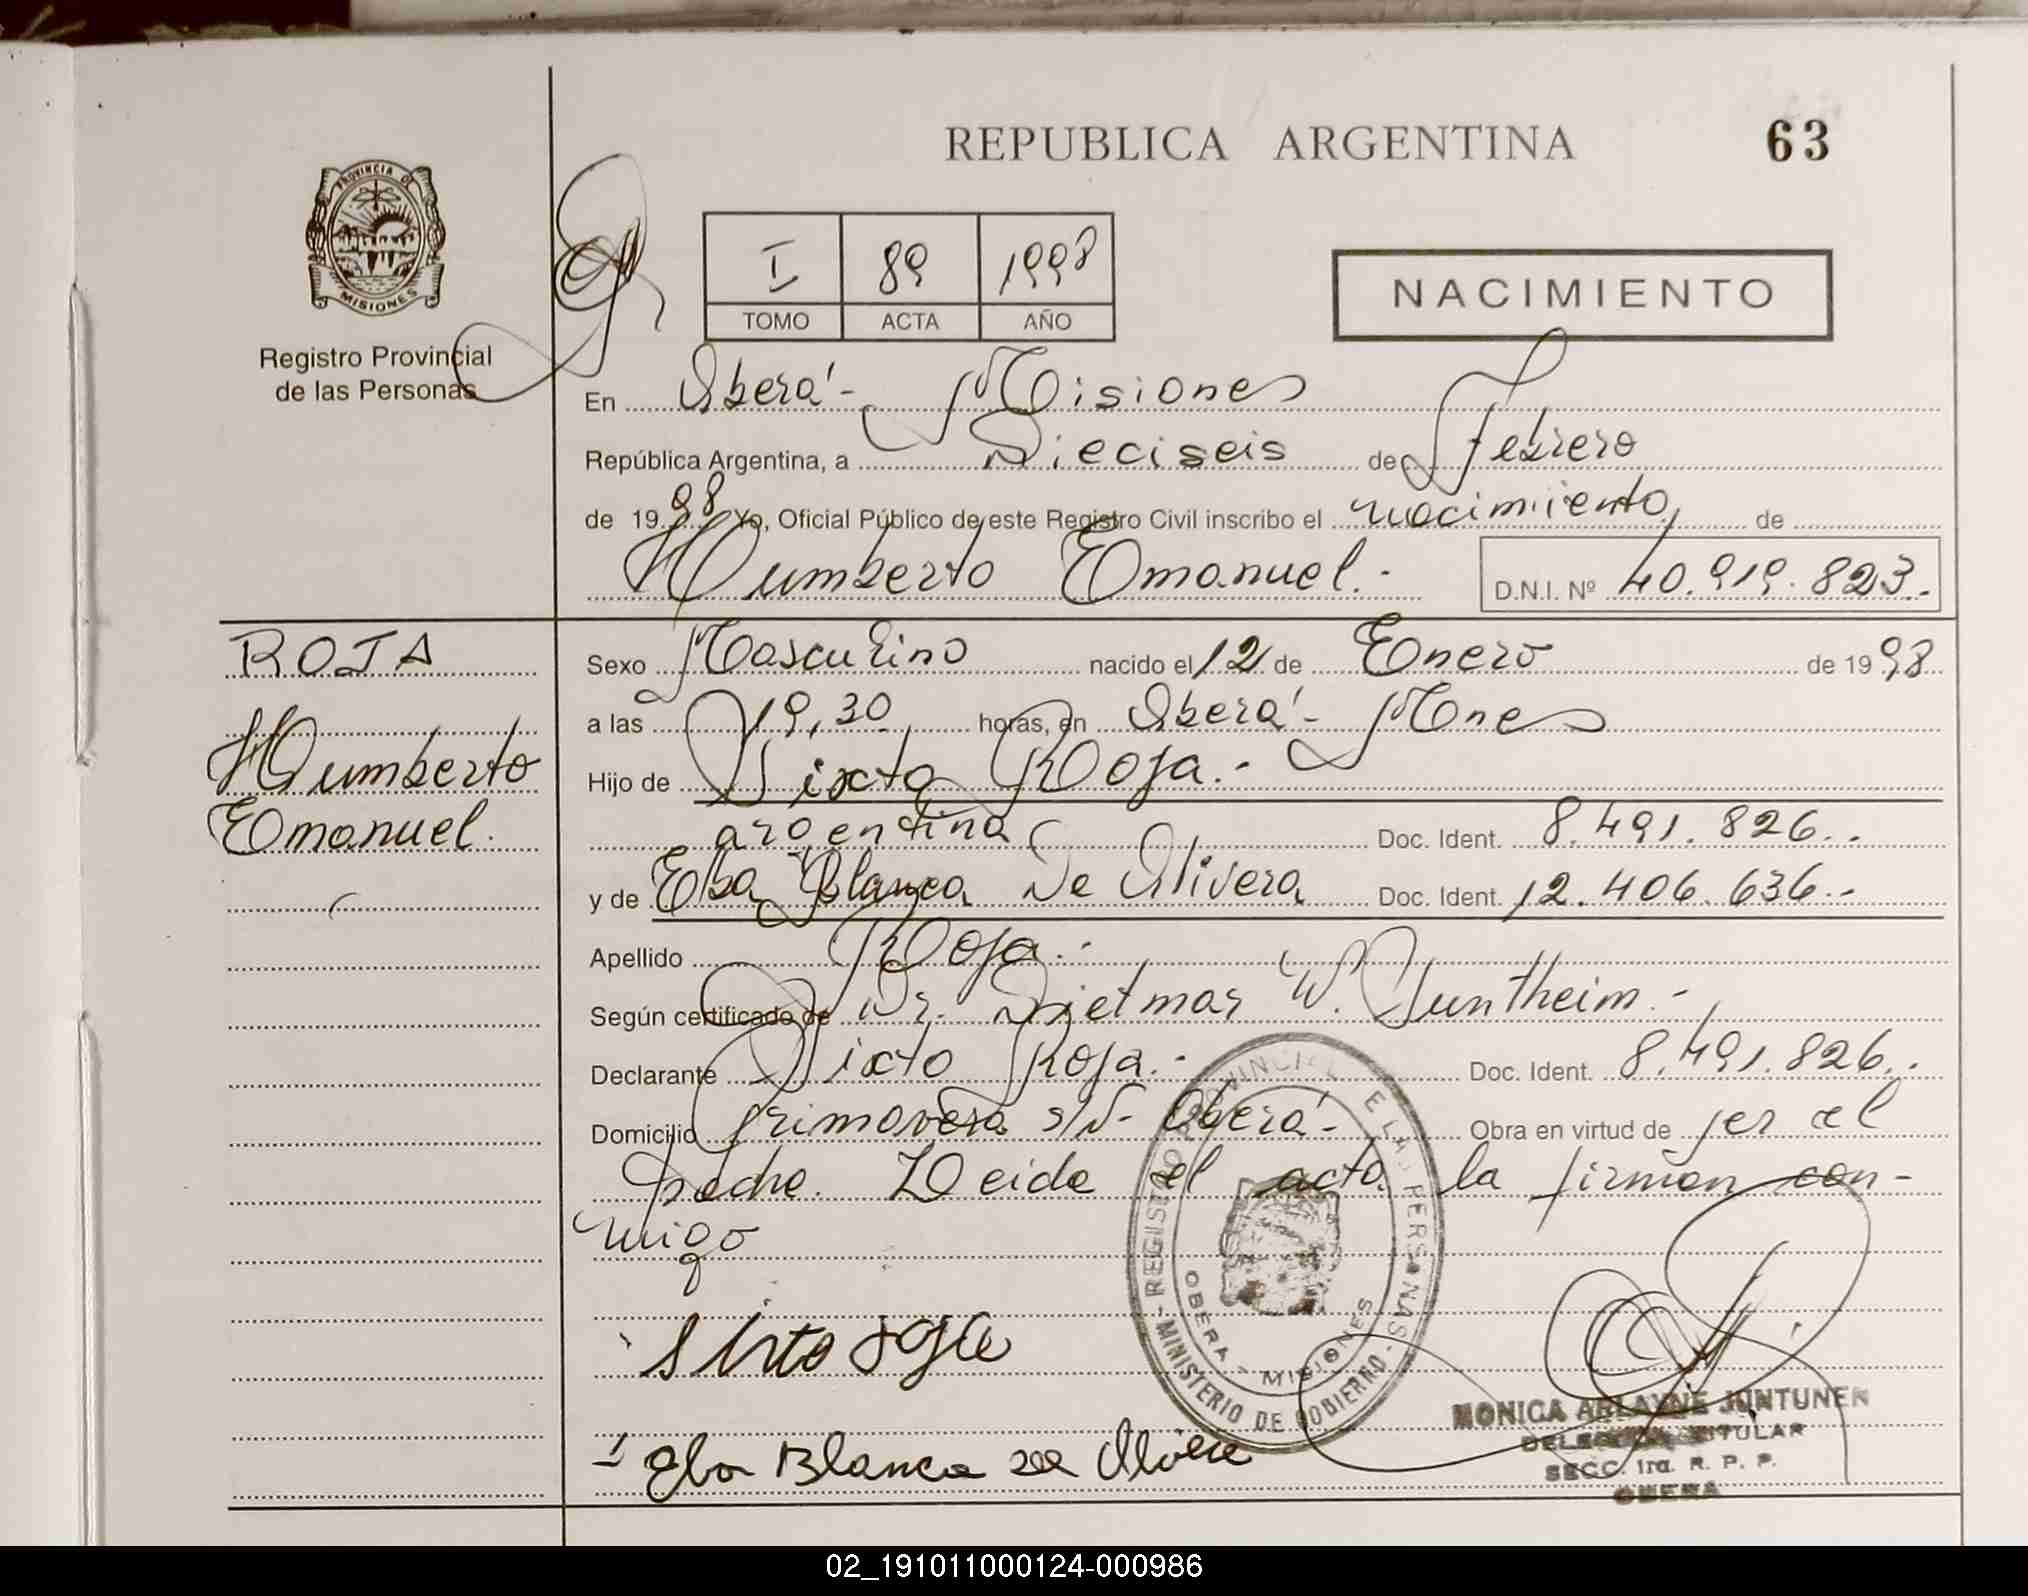 REPUBLICA ARGENTINA
63
PROVINCIA DE
MISIONES
Registro Provincial
de las Personas
I 89 1998
TOMO ACTA AÑO
NACIMIENTO
En Oberá - Misiones
República Argentina, a Dieciseis de Febrero
de 19 98 Yo, Oficial Público de este Registro Civil inscribo el nacimiento, de
Humberto Emanuel.- D.N.I. Nº 40.919.823.-
ROJA
Humberto
Emanuel.
Sexo Masculino nacido el 12 de Enero de 19 98
a las 19,30 horas, en Oberá - Mnes
Hijo de Sixto Roja.-
argentina Doc. Ident. 8.491.826.-
y de Elsa Blanca De Olivera Doc. Ident. 12.406.636.-
Apellido Roja.-
Según certificado de Dr. Dietmar W. Suntheim.-
Declarante Sixto Roja.- Doc. Ident. 8.491.826.-
Domicilio Primavera s/N- Oberá - Obra en virtud de ser el
padre. Leida el acta la firman con-
migo
REGISTRO PROVINCIAL DE LAS PERSONAS
- MINISTERIO DE GOBIERNO -
OBERA - MISIONES
Sixto roja
Elsa Blanca de Olivera
MONICA ARLAYNE JUNTUNEN
DELEGADA TITULAR
SECC. 1ra. R. P. P.
OBERA
02_191011000124-000986